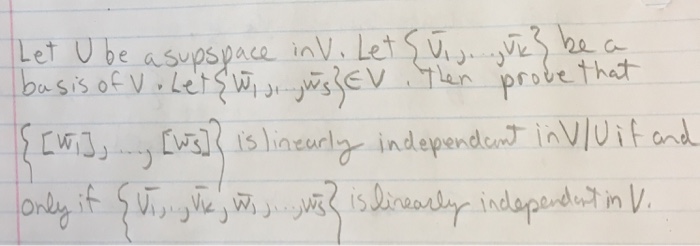 Let U be a supspace in V. Let {v̄₁,..,v̄ₖ} be a
basis of V. Let {w̄₁,..,w̄₅}∈V. Then prove that
{[w̄₁],...,[w̄₅]} is linearly independant in V/U if and
only if {v̄₁,..,v̄ₖ,w̄₁,...,w̄₅} is linearly independent in V.